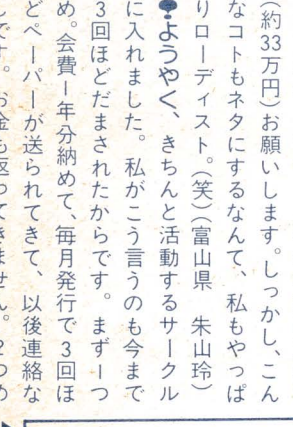 (約33万円)お願いします。しっかし、こん
なコトもネタにするなんて、私もやっぱ
りローディスト。(笑)(富山県 朱山玲)
ようやく、きちんと活動するサークル
に入れました。私がこう言うのも今まで
3回ほどだまされたからです。まず一つ
め。会費一年分納めて、毎月発行で3回ほ
どペーパーが送られてきて、以後連絡な
です。お金も返ってきません。2つめ